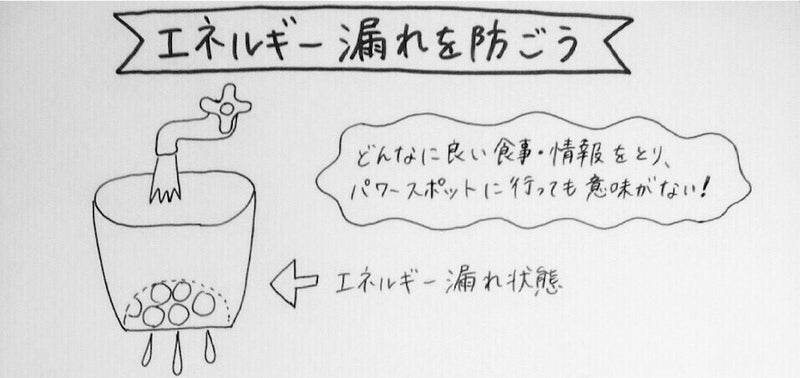 エネルギー漏れを防ごう
どんなに良い食事・情報をとり、
パワースポットに行っても意味がない!
エネルギー漏れ状態